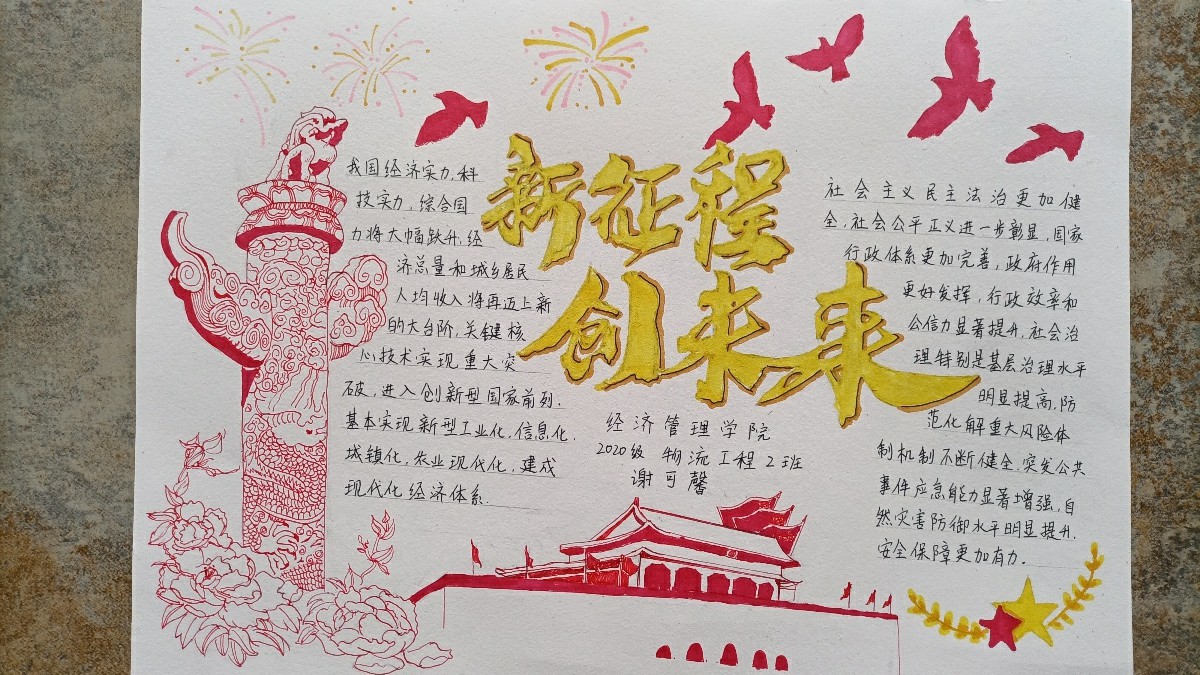 新征程
创未来
我国经济实力,科
技实力,综合国
力将大幅跃升,经
济总量和城乡居民
人均收入将再迈上新
的大台阶,关键核
心技术实现重大突
破,进入创新型国家前列.
基本实现新型工业化,信息化,
城镇化,农业现代化,建成
现代化经济体系.
经济管理学院
2020级 物流工程2班
谢可馨
社会主义民主法治更加健
全,社会公平正义进一步彰显,国家
行政体系更加完善,政府作用
更好发挥,行政效率和
公信力显著提升,社会治
理特别是基层治理水平
明显提高,防
范化解重大风险体
制机制不断健全,突发公共
事件应急能力显著增强,自
然灾害防御水平明显提升.
安全保障更加有力.